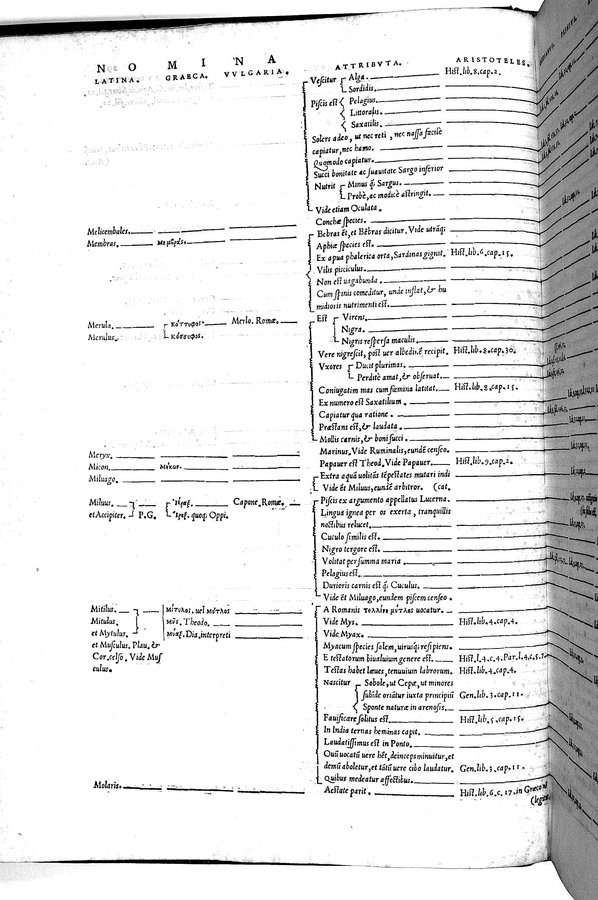 NOMINA
LATINA. GRAECA. VVLGARIA. ATTRIBVTA. ARISTOTELES.
Vescitur Alga. Hist.lib.8.cap.2.
Sordidis.
Piscis est Pelagius.
Littoralis.
Saxatilis.
Solers adeo, ut nec reti, nec nassa facile
capiatur, nec hamo.
Quomodo capiatur.
Succi bonitate ac suauitate Sargo inferior
Nutrit Minus q̃ Sargus.
Probè, ac modicè astringit.
Vide etiam Oculata.
Melicembales. Conchæ species.
Membras. Bebras ẽt, et Bẽbras dicitur. Vide utrãq;
Aphiæ species est.
Ex apua phalerica orta, Sardinas gignit. Hist.lib.6.cap.15.
Vilis pisciculus.
Non est uagabunda.
Cum spinis comeditur, unde inflat, & hu
midioris nutrimenti est.
Merula. κόττυφοι. Merlo. Romæ. Est Virens.
Merulus. κόσσυφοι. Nigra.
Nigris respersa maculis.
Vere nigrescit, post uer albedinẽ recipit. Hist.lib.8.cap.30.
Vxores Ducit plurimas.
Perditè amat, & obseruat.
Coniugatim mas cum fœmina latitat. Hist.lib.8.cap.15.
Ex numero est Saxatilium.
Capiatur qua ratione.
Præstans est, & laudata.
Mollis carnis, & boni succi.
Meryx. Marinus, Vide Ruminalis, eundẽ censeo.
Micon. Papauer est Theod. Vide Papauer. Hist.lib.9.cap.2.
Miluago. Extra aquã uolitãs tẽpestates mutari indi
Vide ẽt Miluus, eundẽ arbitror. (cat.
Miluus. ἱέραξ. Capone. Romæ. Piscis ex argumento appellatus Lucerna.
et Accipiter. P.G. ἵρηξ. quoq; Oppi. Lingua ignea per os exerta, tranquillis
noctibus relucet.
Cuculo similis est.
Nigro tergore est.
Volitat per summa maria
Pelagius est.
Durioris carnis est q̃ Cuculus.
Vide ẽt Miluago, eundem piscem censeo.
Mitilus. μίτιλος, uel μύτλος A Romanis τελλίνη μύτλος uocatur.
Mitulus. μῦς, Theodo. Vide Mys. Hist.lib.4.cap.4.
et Mytulus. Dia.interpreti Vide Myax.
et Musculus. Plau. & Myacum species salem, uirusq; resipiens.
Cor.celso. Vide Mus E testatorum biualuium genere est. Hist.l.4.c.4.Par.l.4.c.5.7
culus. Testas habet læues, tenuium labrorum. Hist.lib.4.cap.4.
Nascitur Sobole, ut Cepæ, ut minores
subide oriãtur iuxta principiũ Gen.lib.3.cap.11.
Sponte naturæ in arenosis.
Fauificare solitus est. Hist.lib.5.cap.15.
In India ternas heminas capit.
Laudatissimus est in Ponto.
Ouũ uocatũ uere hẽt, deinceps minuitur, et
demũ aboletur, et tãtũ uere cibo laudatur. Gen.lib.3.cap.11.
Quibus medeatur affectibus.
Molaris. Aestate parit. Hist.lib.6.c.17.in Græco nõ
(legitur